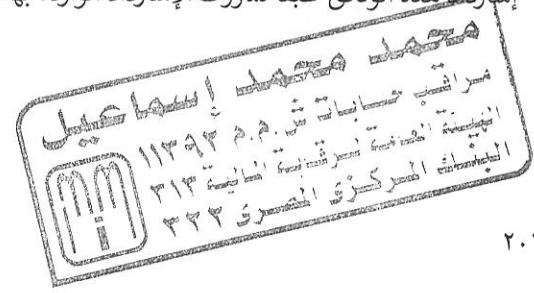 محمد محمد إسماعيل
مراقب حسابات س.م.م ١١٣٩٢
الهيئة العامة للرقابة المالية ٣١٣
البنك المركزى المصرى ٣٢٢
٢٠